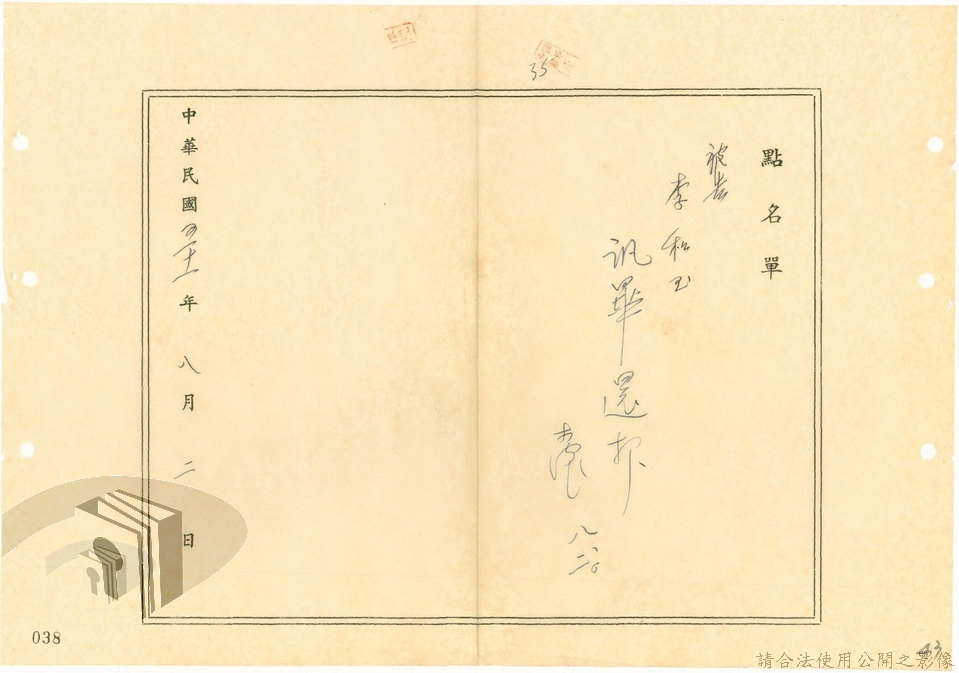 35
點名單
被告
李和玉
訊畢還押
袁
八、二、
中華民國四十一年八月二日
038
43
請合法使用公開之影像